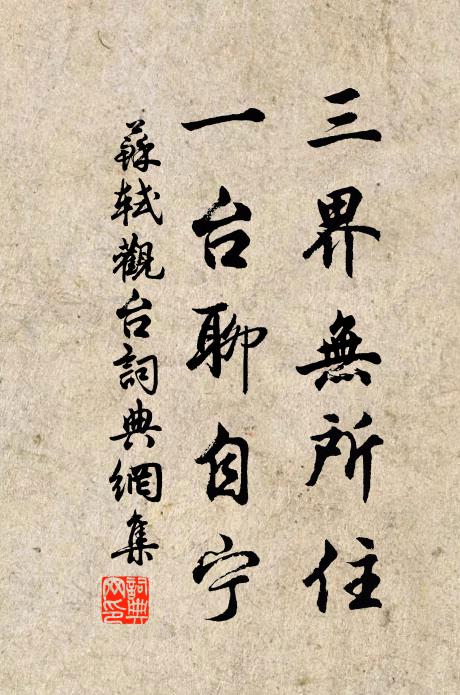 三界無所住
一台聊自宁
蘇軾觀台詞典網集
詞典
网印